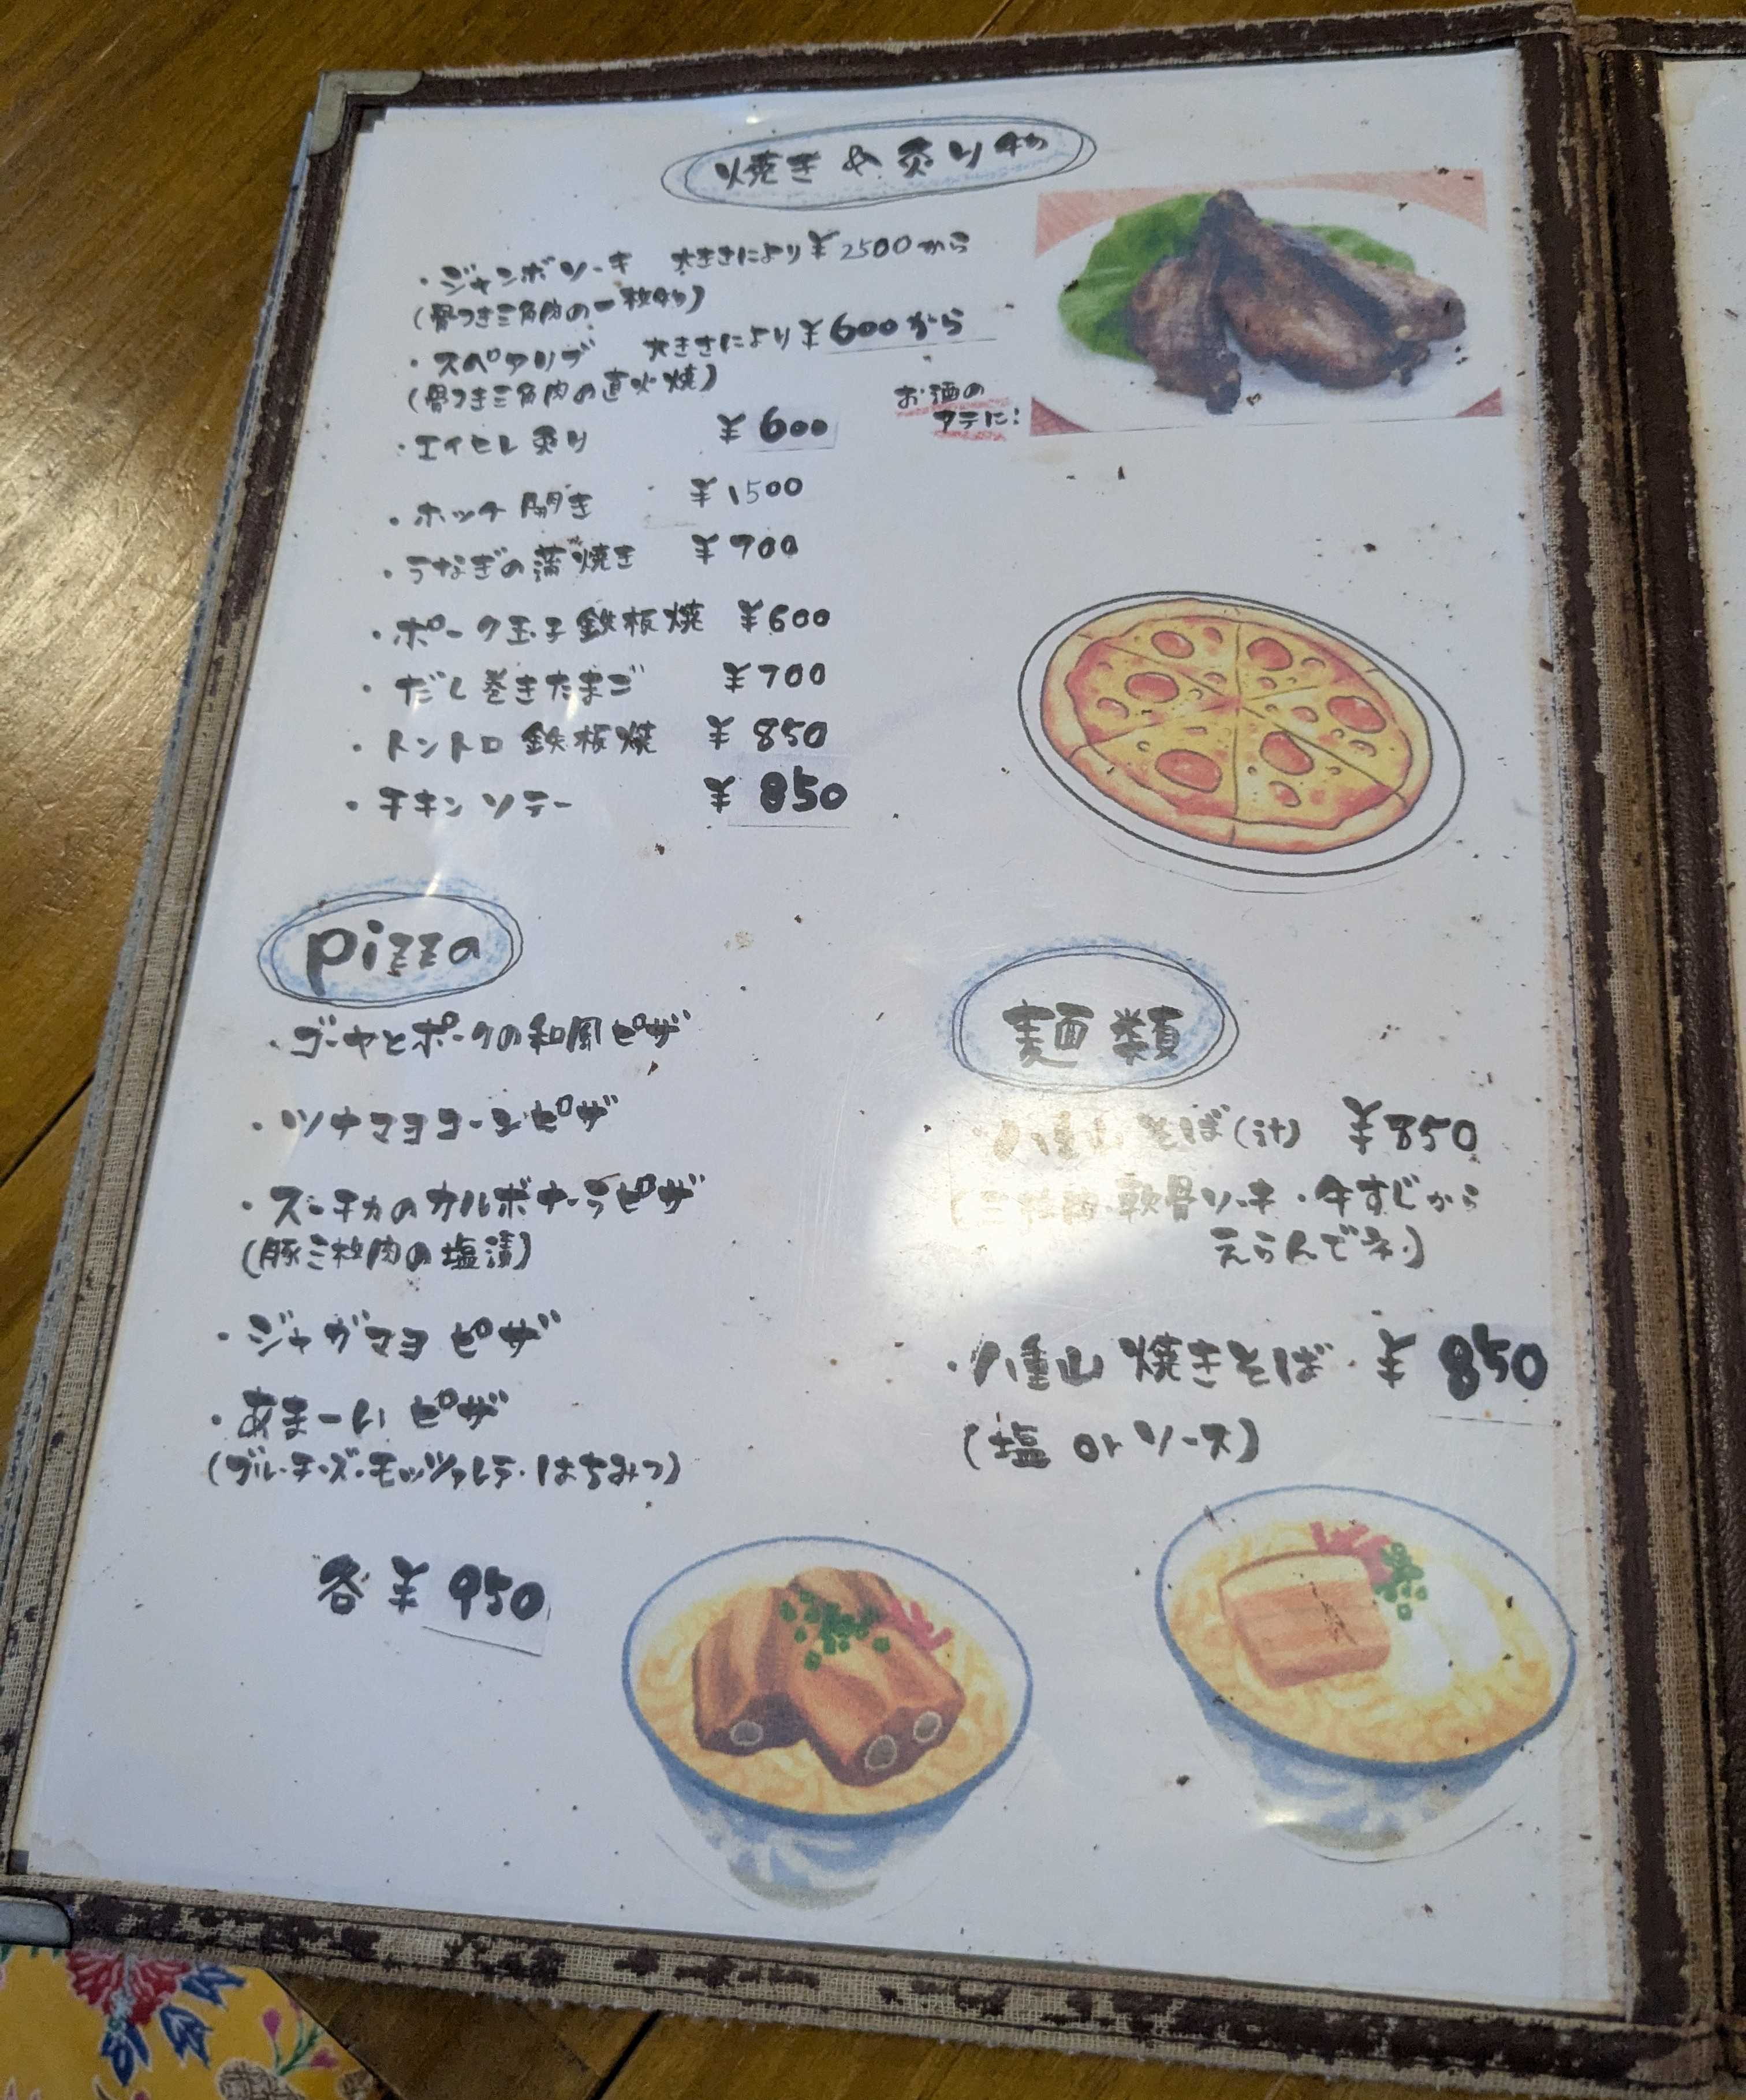 焼き & 炙り物
・ジャンボソーキ 大きさにより ¥2500から
(骨つき三角肉の一枚物)
・スペアリブ 大きさにより ¥600から
(骨つき三角肉の直火焼)
・エイヒレ炙り ¥600
お酒の
アテに!
・ホッケ開き ¥1500
・うなぎの蒲焼き ¥700
・ポーク玉子鉄板焼 ¥600
・だし巻きたまご ¥700
・トントロ鉄板焼 ¥850
・チキンソテー ¥850
pizza
・ゴーヤとポークの和風ピザ
・ツナマヨコーンピザ
・スーチカのカルボナーラピザ
(豚三枚肉の塩漬)
・ジャガマヨピザ
・あまーいピザ
(ブルーチーズ・モッツァレラ・はちみつ)
各 ¥950
麺類
八重山そば(汁) ¥850
(三枚肉・軟骨ソーキ・牛すじから
えらんでネ)
・八重山焼きそば ¥850
(塩 or ソース)